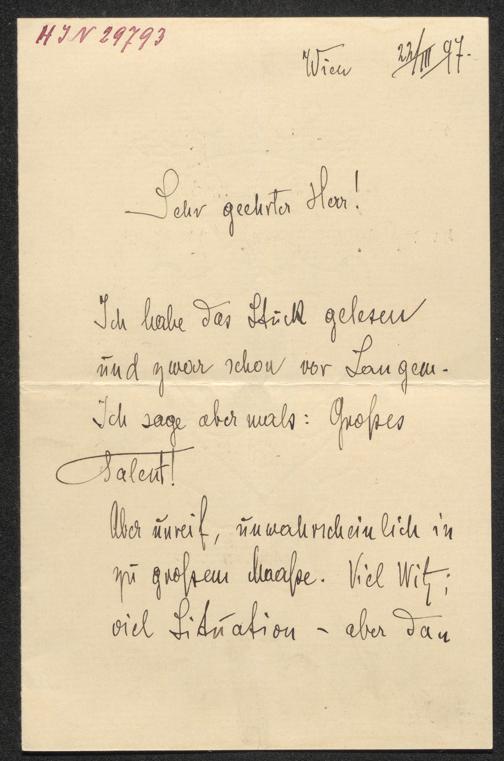 HIN 29793
Wien 22/III 97.
Sehr geehrter Herr!
Ich habe das Stück gelesen
und zwar schon vor Langem.
Ich sage abermals: Großes
Talent!
Aber unreif, unwahrscheinlich in
zu großem Maaße. Viel Witz;
viel Situation – aber dan